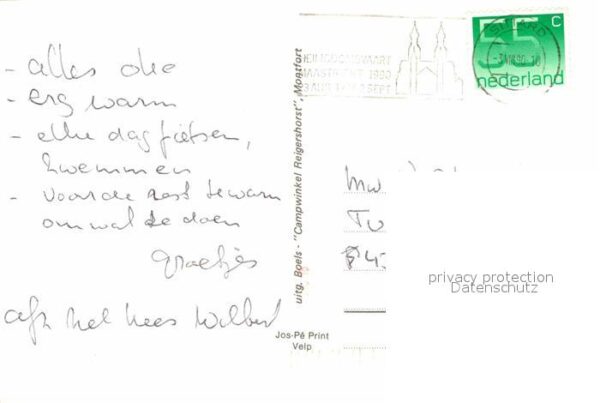 - alles oke
- erg warm
- elke dag fietsen,
zwemmen
- voor de rest te warm
om wat te doen
Groetjes
uitg. Boels - "Campwinkel Reigershorst", Montfort
Jos-Pé Print
Velp
HEILIGDOMSVAART
MAASTRICHT 1990
SITTARD
55 c
nederland
privacy protection
Datenschutz